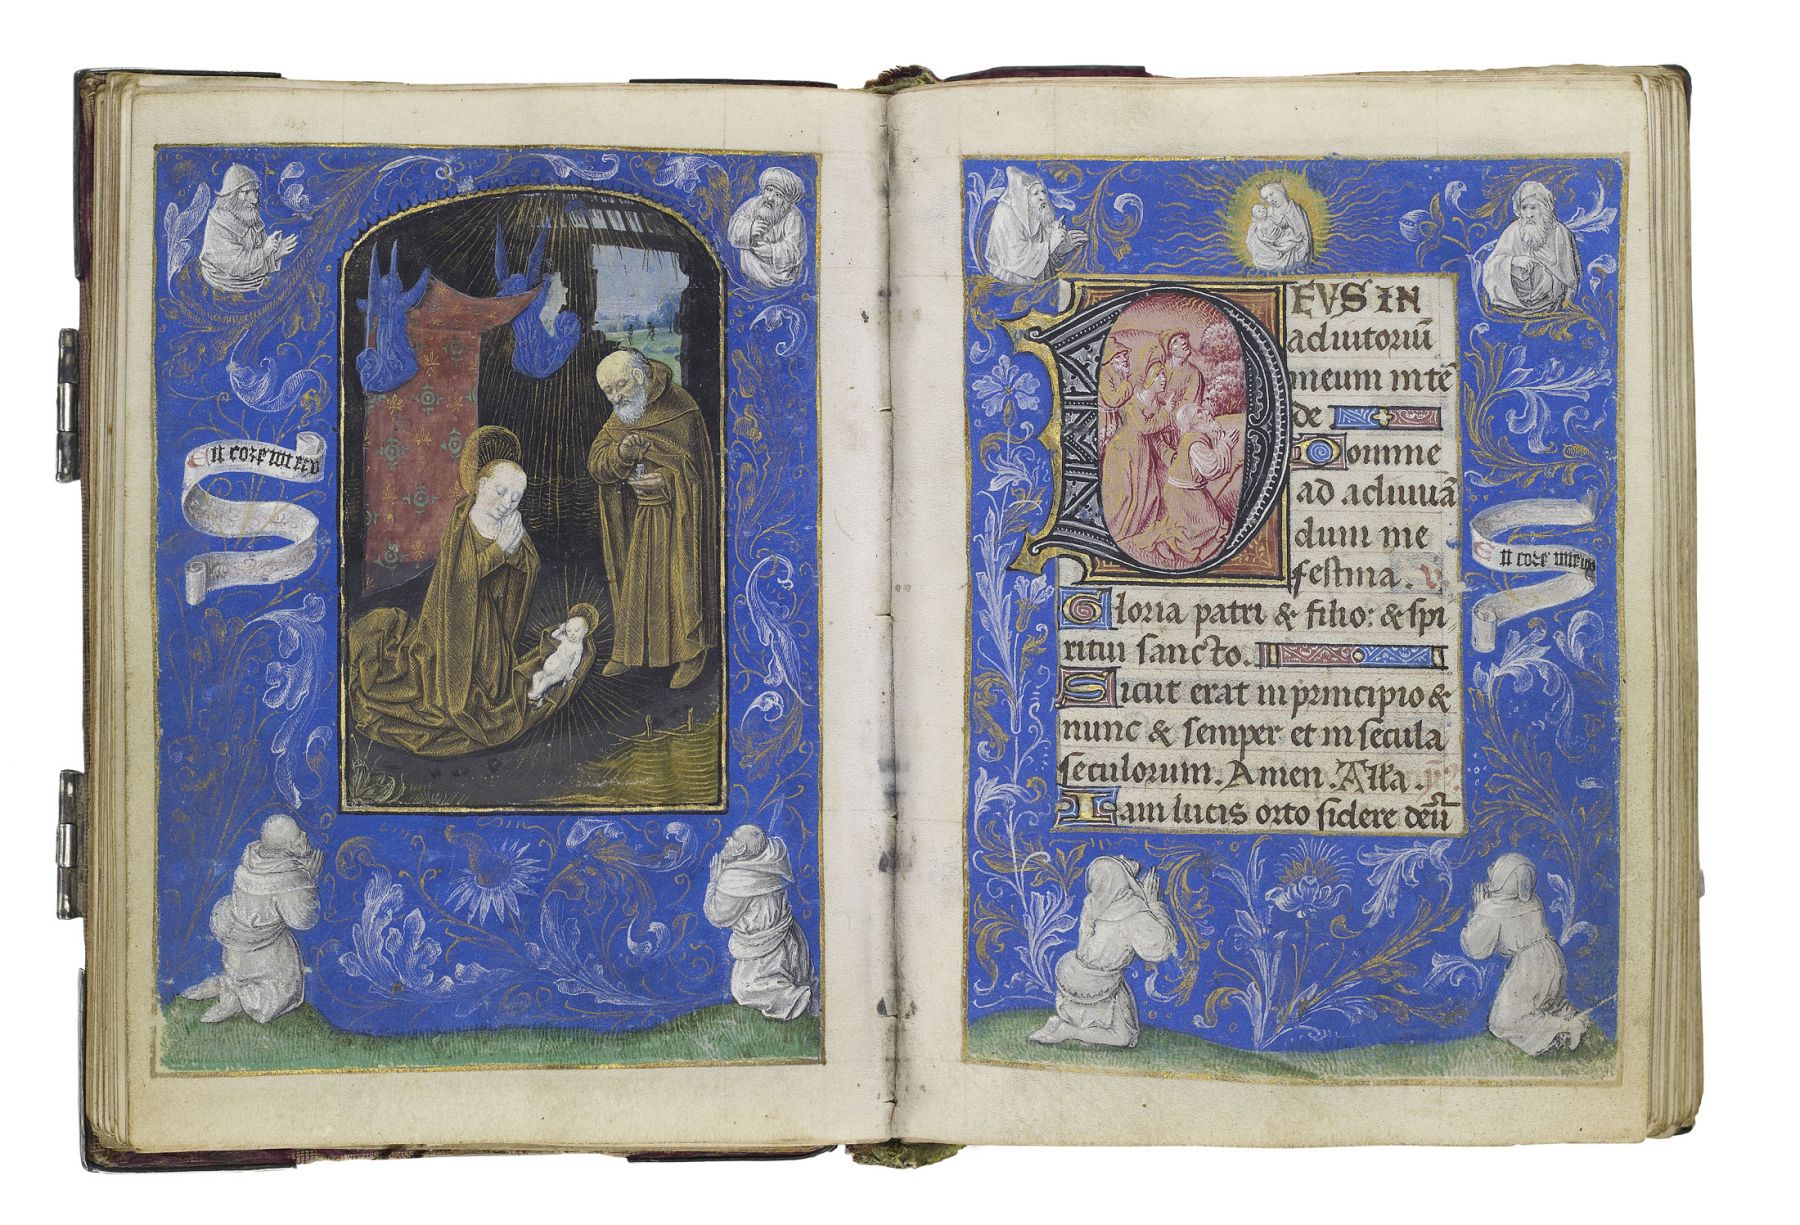 EVS IN
adiutoriū
meum intē
de
Domine
ad adiuuā
dum me
festina.
Gloria patri & filio: & spi
ritui sancto.
Sicut erat in principio &
nunc & semper et in secula
seculorum. Amen. All'a.
Iam lucis orto sidere deū